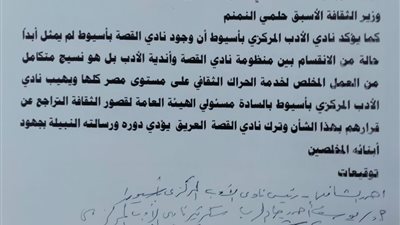 وزير الثقافة الأسبق حلمي النمنم
كما يؤكد نادي الأدب المركزي بأسيوط أن وجود نادي القصة بأسيوط لم يمثل أبداً
حالة من الانقسام بين منظومة نادي القصة وأندية الأدب بل هو نسيج متكامل
من العمل المخلص لخدمة الحراك الثقافي على مستوى مصر كلها ويهيب نادي
الأدب المركزي بأسيوط بالسادة مسئولي الهيئة العامة لقصور الثقافة التراجع عن
قرارهم بهذا الشأن وترك نادي القصة العريق يؤدي دوره ورسالته النبيلة بجهود
أبنائه المخلصين
توقيعات
رئيس نادي الأدب المركزي